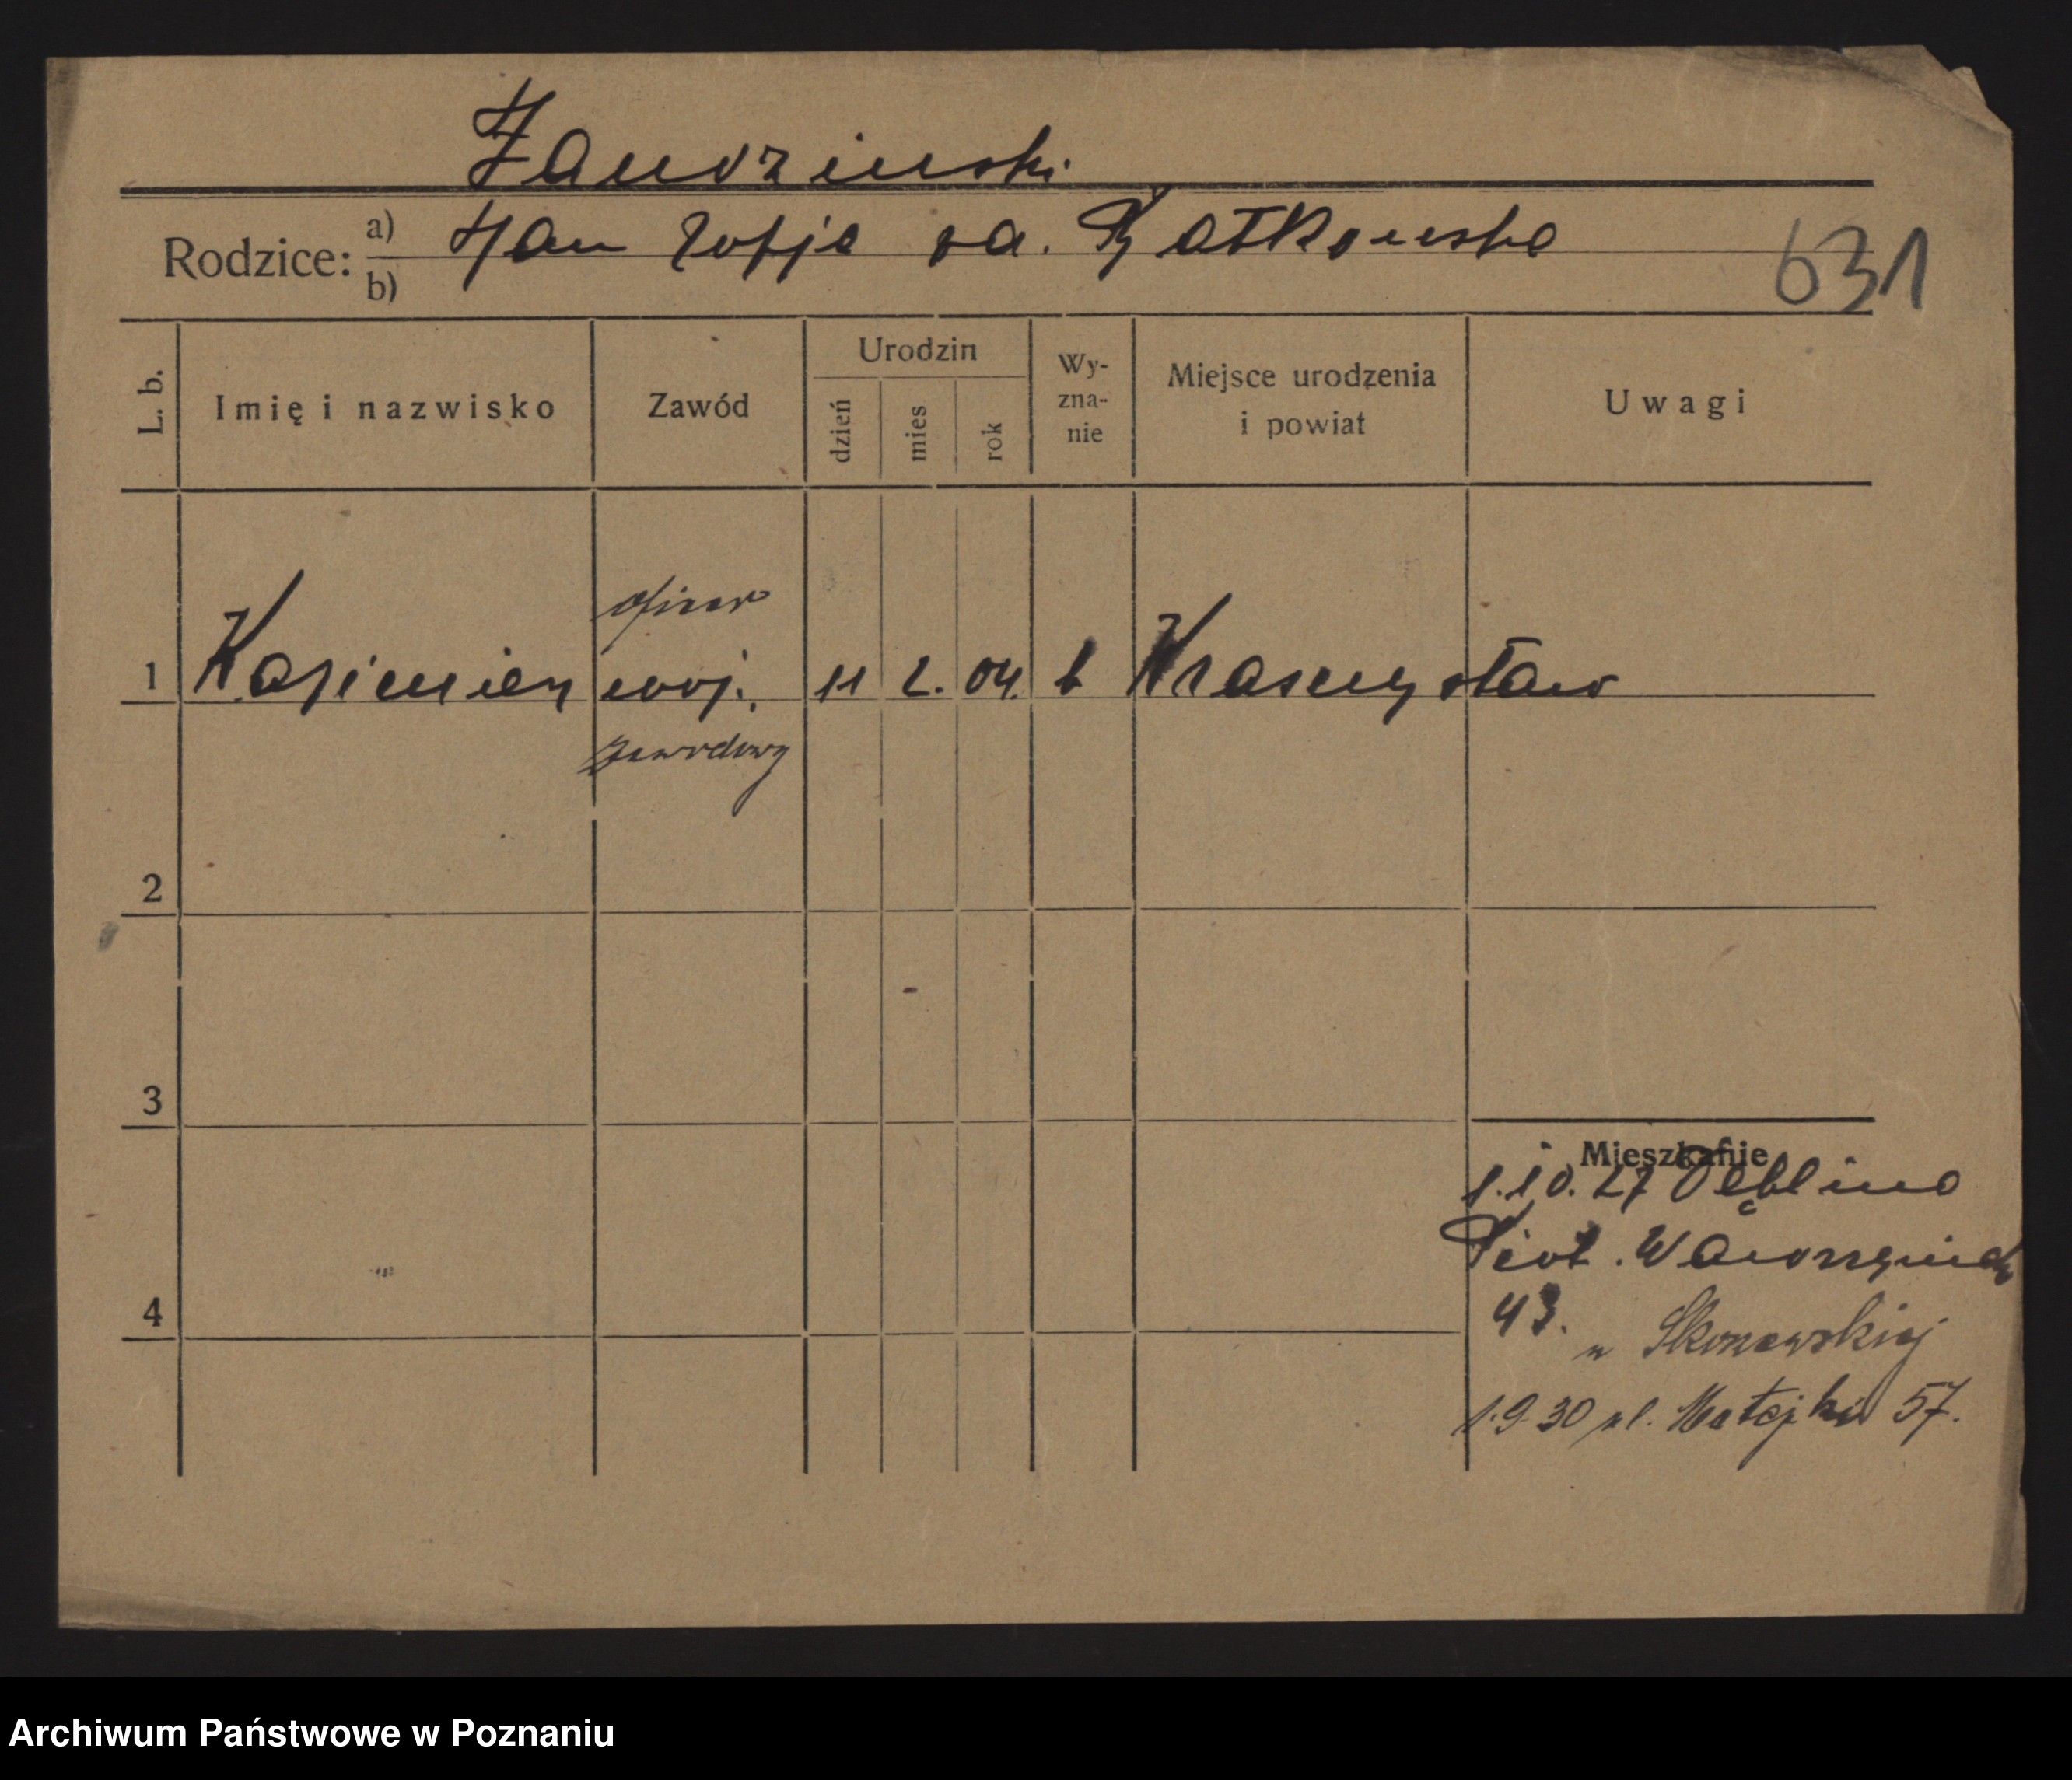 Rodzice: a) Jan Zofja
b)
631
L. b.
Imię i nazwisko
Zawód
Urodzin
dzień
mies
rok
Wy-
zna-
nie
Miejsce urodzenia
i powiat
Uwagi
oficer
1 Kazimierz woj. 11 2. 04. Krasnystaw
zawodowy
2
3
4
Mieszkanie
1.10.27 Dęblina
Piot. Wawrzyniak
43.
u
1.9.30 ul. Matejki 57.
Archiwum Państwowe w Poznaniu